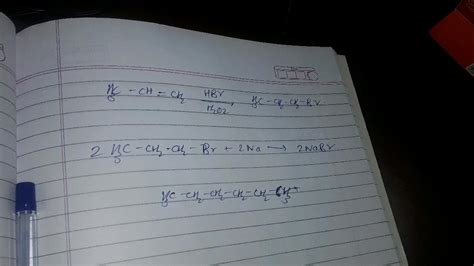 H₃C - CH = CH₂ HBr/H₂O₂, H₃C-CH₂-CH₂-Br
2 H₃C - CH₂ - CH₂ - Br + 2Na → 2NaBr
H₃C - CH₂ - CH₂ - CH₂ - CH₂ - CH₃